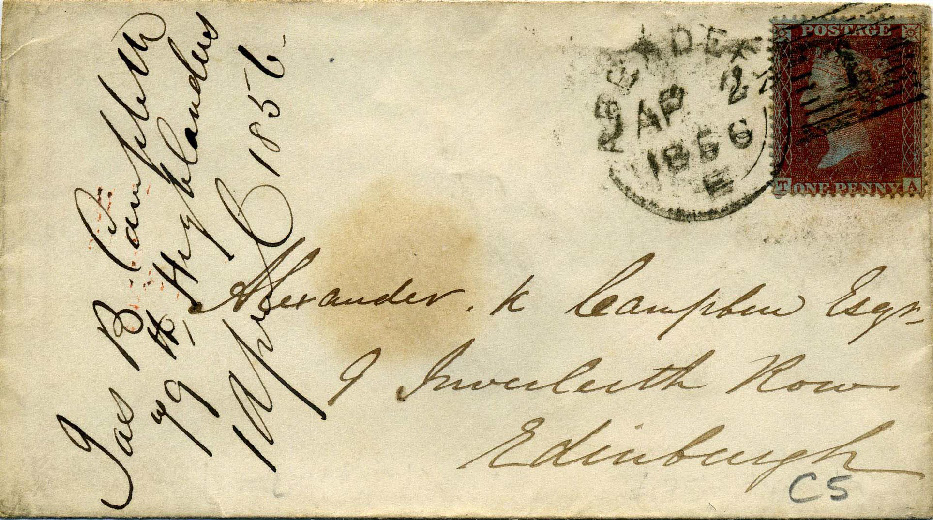 Jas B Campbell
79th Highlanders
1 April 1856
ABERDEEN
AP 2
1856
E
POSTAGE
T ONE PENNY A
1
Alexander. K Campbell Esqr
9 Inverleith Row
Edinburgh
C5